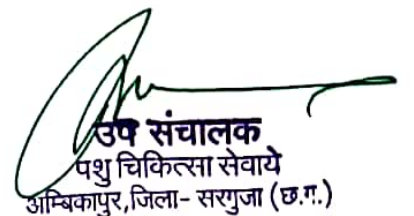 उप संचालक
पशु चिकित्सा सेवाये
अम्बिकापुर,जिला- सरगुजा (छ.ग.)